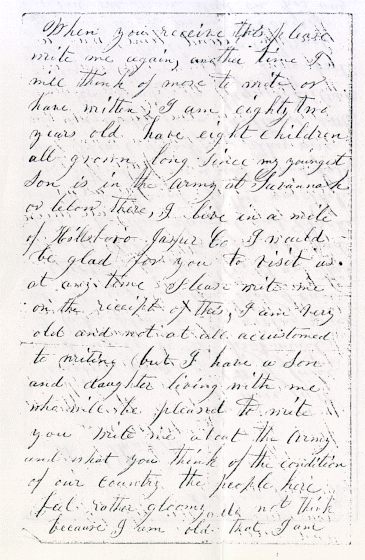 When you receive this please
write me again, another time I
will think of more to write or
have written I am eighty two
years old have eight children
all grown long since my youngest
son is in the army at Savannah
or below there, I live in a mile
of Hillsboro Jasper Co I would
be glad for you to visit us
at any time Please write me
on the receipt of this, I am very
old and not at all accustomed
to writing (but I have a son
and daughter living with me
who will be pleased to write
you write me about the army
and what you think of the condition
of our country the people here
feel rather gloomy do not think
because I am old that I am